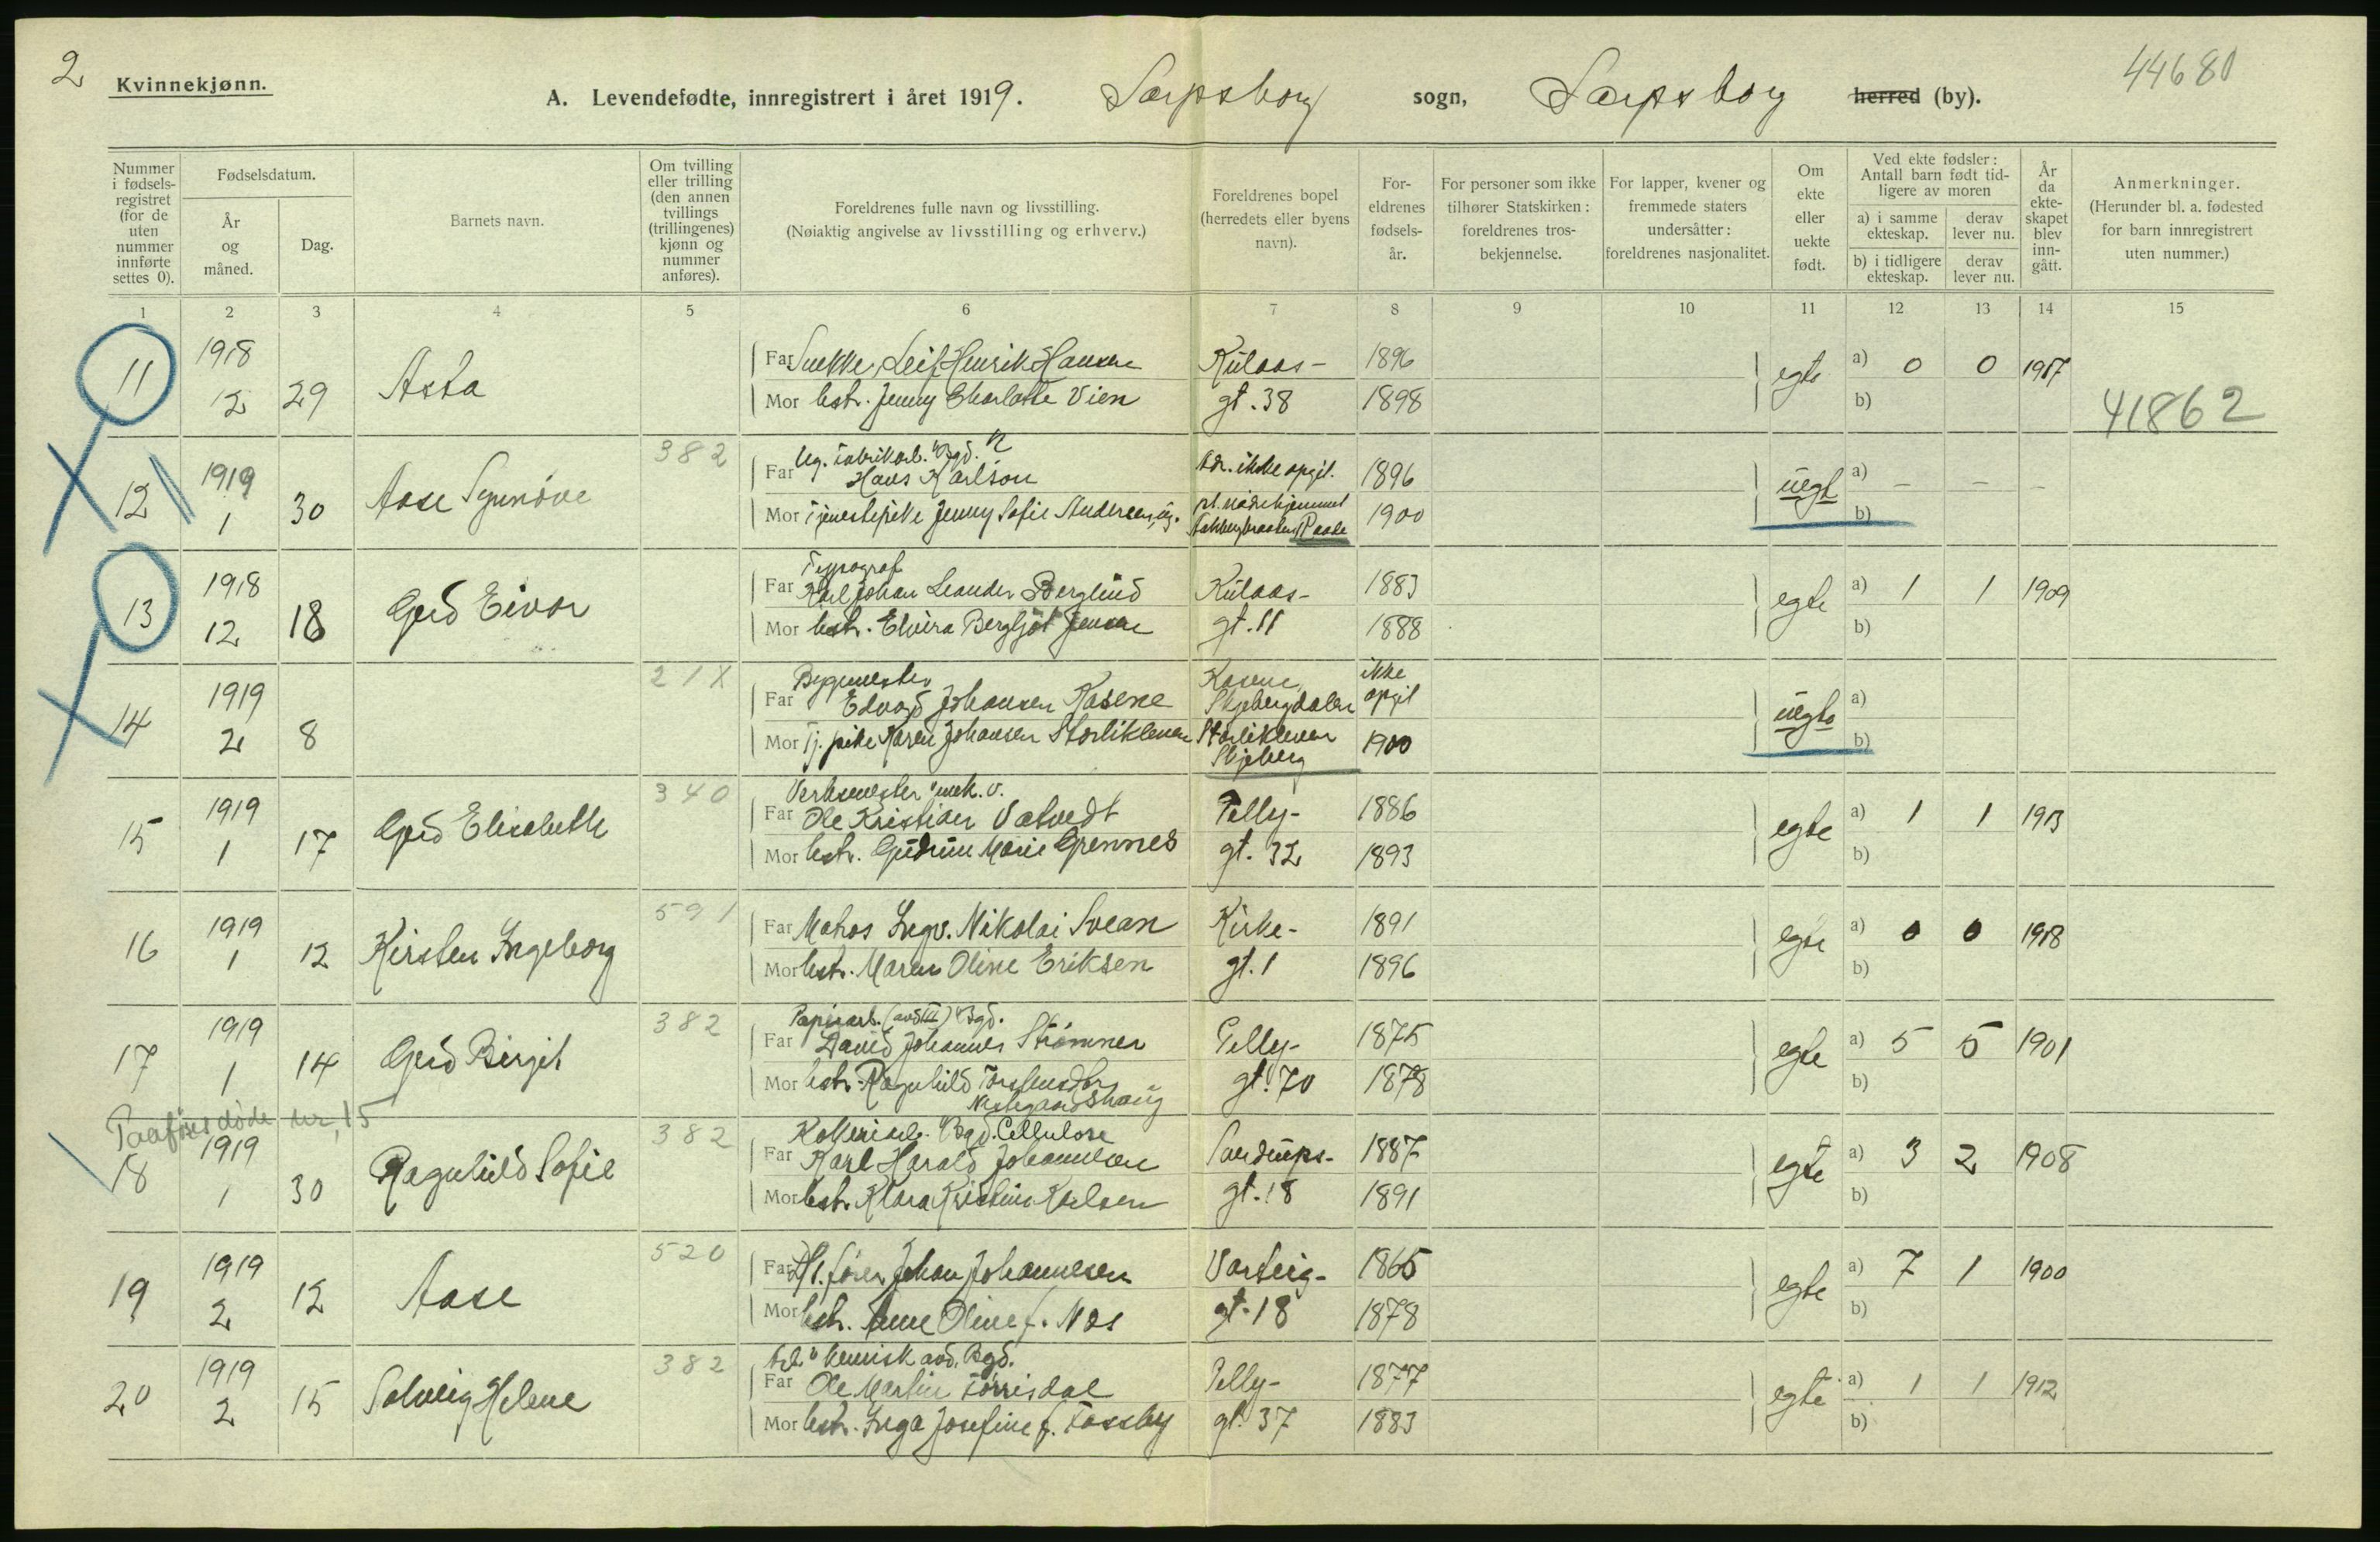 2
Kvinnekjønn.
A. Levendefødte, innregistrert i året 1919. Sarpsborg sogn, Sarpsborg herred (by).
44680
Nummer i fødsels-registret (for de uten nummer innførte settes 0).
Fødselsdatum.
År og måned.
Dag.
Barnets navn.
Om tvilling eller trilling (den annen tvillings (trillingenes) kjønn og nummer anføres).
Foreldrenes fulle navn og livsstilling.
(Nøiaktig angivelse av livsstilling og erhverv.)
Foreldrenes bopel (herredets eller byens navn).
For-eldrenes fødsels-år.
For personer som ikke tilhører Statskirken: foreldrenes tros-bekjennelse.
For lapper, kvener og fremmede staters undersåtter: foreldrenes nasjonalitet.
Om ekte eller uekte født.
Ved ekte fødsler: Antall barn født tid-ligere av moren
a) i samme ekteskap.
derav lever nu.
b) i tidligere ekteskap.
derav lever nu.
År da ekte-skapet blev inn-gått.
Anmerkninger.
(Herunder bl. a. fødested for barn innregistrert uten nummer.)
1 2 3 4 5 6 7 8 9 10 11 12 13 14 15
11 1918 12 29 Asta
Far Leif Henrik Hansen Kulaas- 1896
Mor hstr. Jenny Charlotte Vien gt. 38 1898
egte a) 0 0 1917
b)
41862
12 1919 1 30 Aase Synnöve 382
Ug. Fabrikarb. Bgd.
Far Hans Karlson Adr. ikke opgit. 1896
Mor Tjenestepike Jenny Sofie Andersen, ug. Raade 1900
uegt a) - - -
b)
13 1918 12 18 Gerd Eivor
Typograf
Far Karl Johan Leander Berglund Kulaas- 1883
Mor hstr. Elvira Bergljot Jensen gt. 11 1888
egte a) 1 1 1909
b)
14 1919 2 8 21X
Bygmester
Far Edvard Johansen Kasene Kasene, Skjebergdalen ikke opgit
Mor Tj. pike Karen Johansen Storlikleven Storlikleven Skjeberg 1900
uegte a)
b)
15 1919 1 17 Gerd Elisabeth 340
Verksmester mek. v.
Far Ole Kristian Vatvedt Pelly- 1886
Mor hstr. Gudrun Marie Grennes gt. 32 1893
egte a) 1 1 1913
b)
16 1919 1 12 Kirsten Ingeborg 591
Far Matros Ingv. Nikolai Svean Kirke- 1891
Mor hstr. Maren Oline Eriksen gt. 1 1896
egte a) 0 0 1918
b)
17 1919 1 14 Gerd Birgit 382
Papirarb. (avd III) Bgd.
Far David Johannes Strømner Pelly- 1875
Mor hstr. Ragnhild Torstensdtr. gt. 70 1878
egte a) 5 5 1901
b)
Paaført døde nr. 15
18 1919 1 30 Ragnhild Sofie 382
Kokeriarb. Bgd. Cellulose
Far Karl Harald Johannesen Sandrups- 1887
Mor hstr. Klara Kristine Karlsen gt. 18 1891
egte a) 3 2 1908
b)
19 1919 2 12 Aase 520
Far fører Johan Johannesen Varteig- 1865
Mor hstr. Anne Oline f. Næs gt. 18 1878
egte a) 7 1 1900
b)
20 1919 2 15 Solveig Helene 382
Arb. kemisk avd. Bgd.
Far Ole Martin Torrisdal Pelly- 1877
Mor hstr. Inga Josefine f. Tossby gt. 37 1883
egte a) 1 1 1912
b)